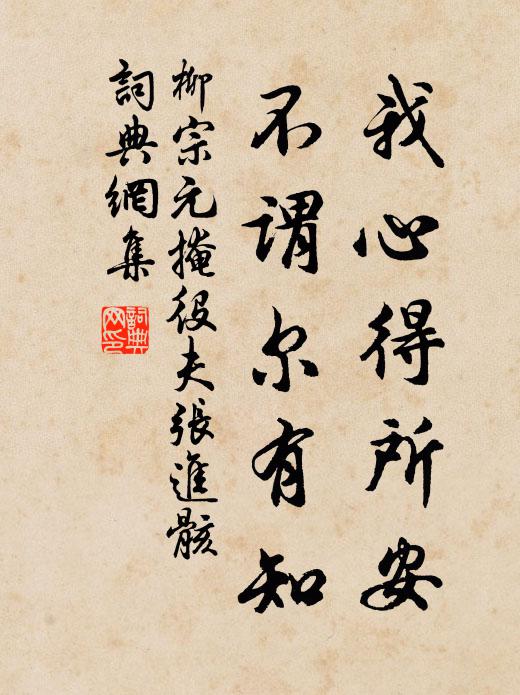 我心得所安
不谓尔有知
柳宗元掩役夫張進骸
詞典網集
詞典网印